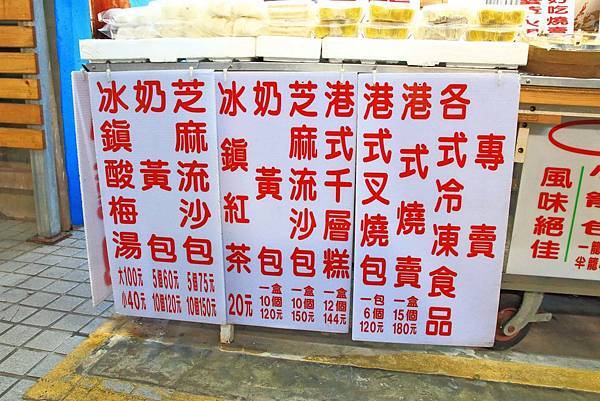 專賣
各式冷凍食品
港式燒賣
一盒
15個
180元
港式叉燒包
一包
6個
120元
港式千層糕
一盒
12個
144元
芝麻流沙包
一盒
10個
150元
奶黃包
一盒
10個
120元
冰鎮紅茶
20元
芝麻流沙包
5個75元
10個150元
奶黃包
5個60元
10個120元
冰鎮酸梅湯
大100元
小40元
風味絕佳